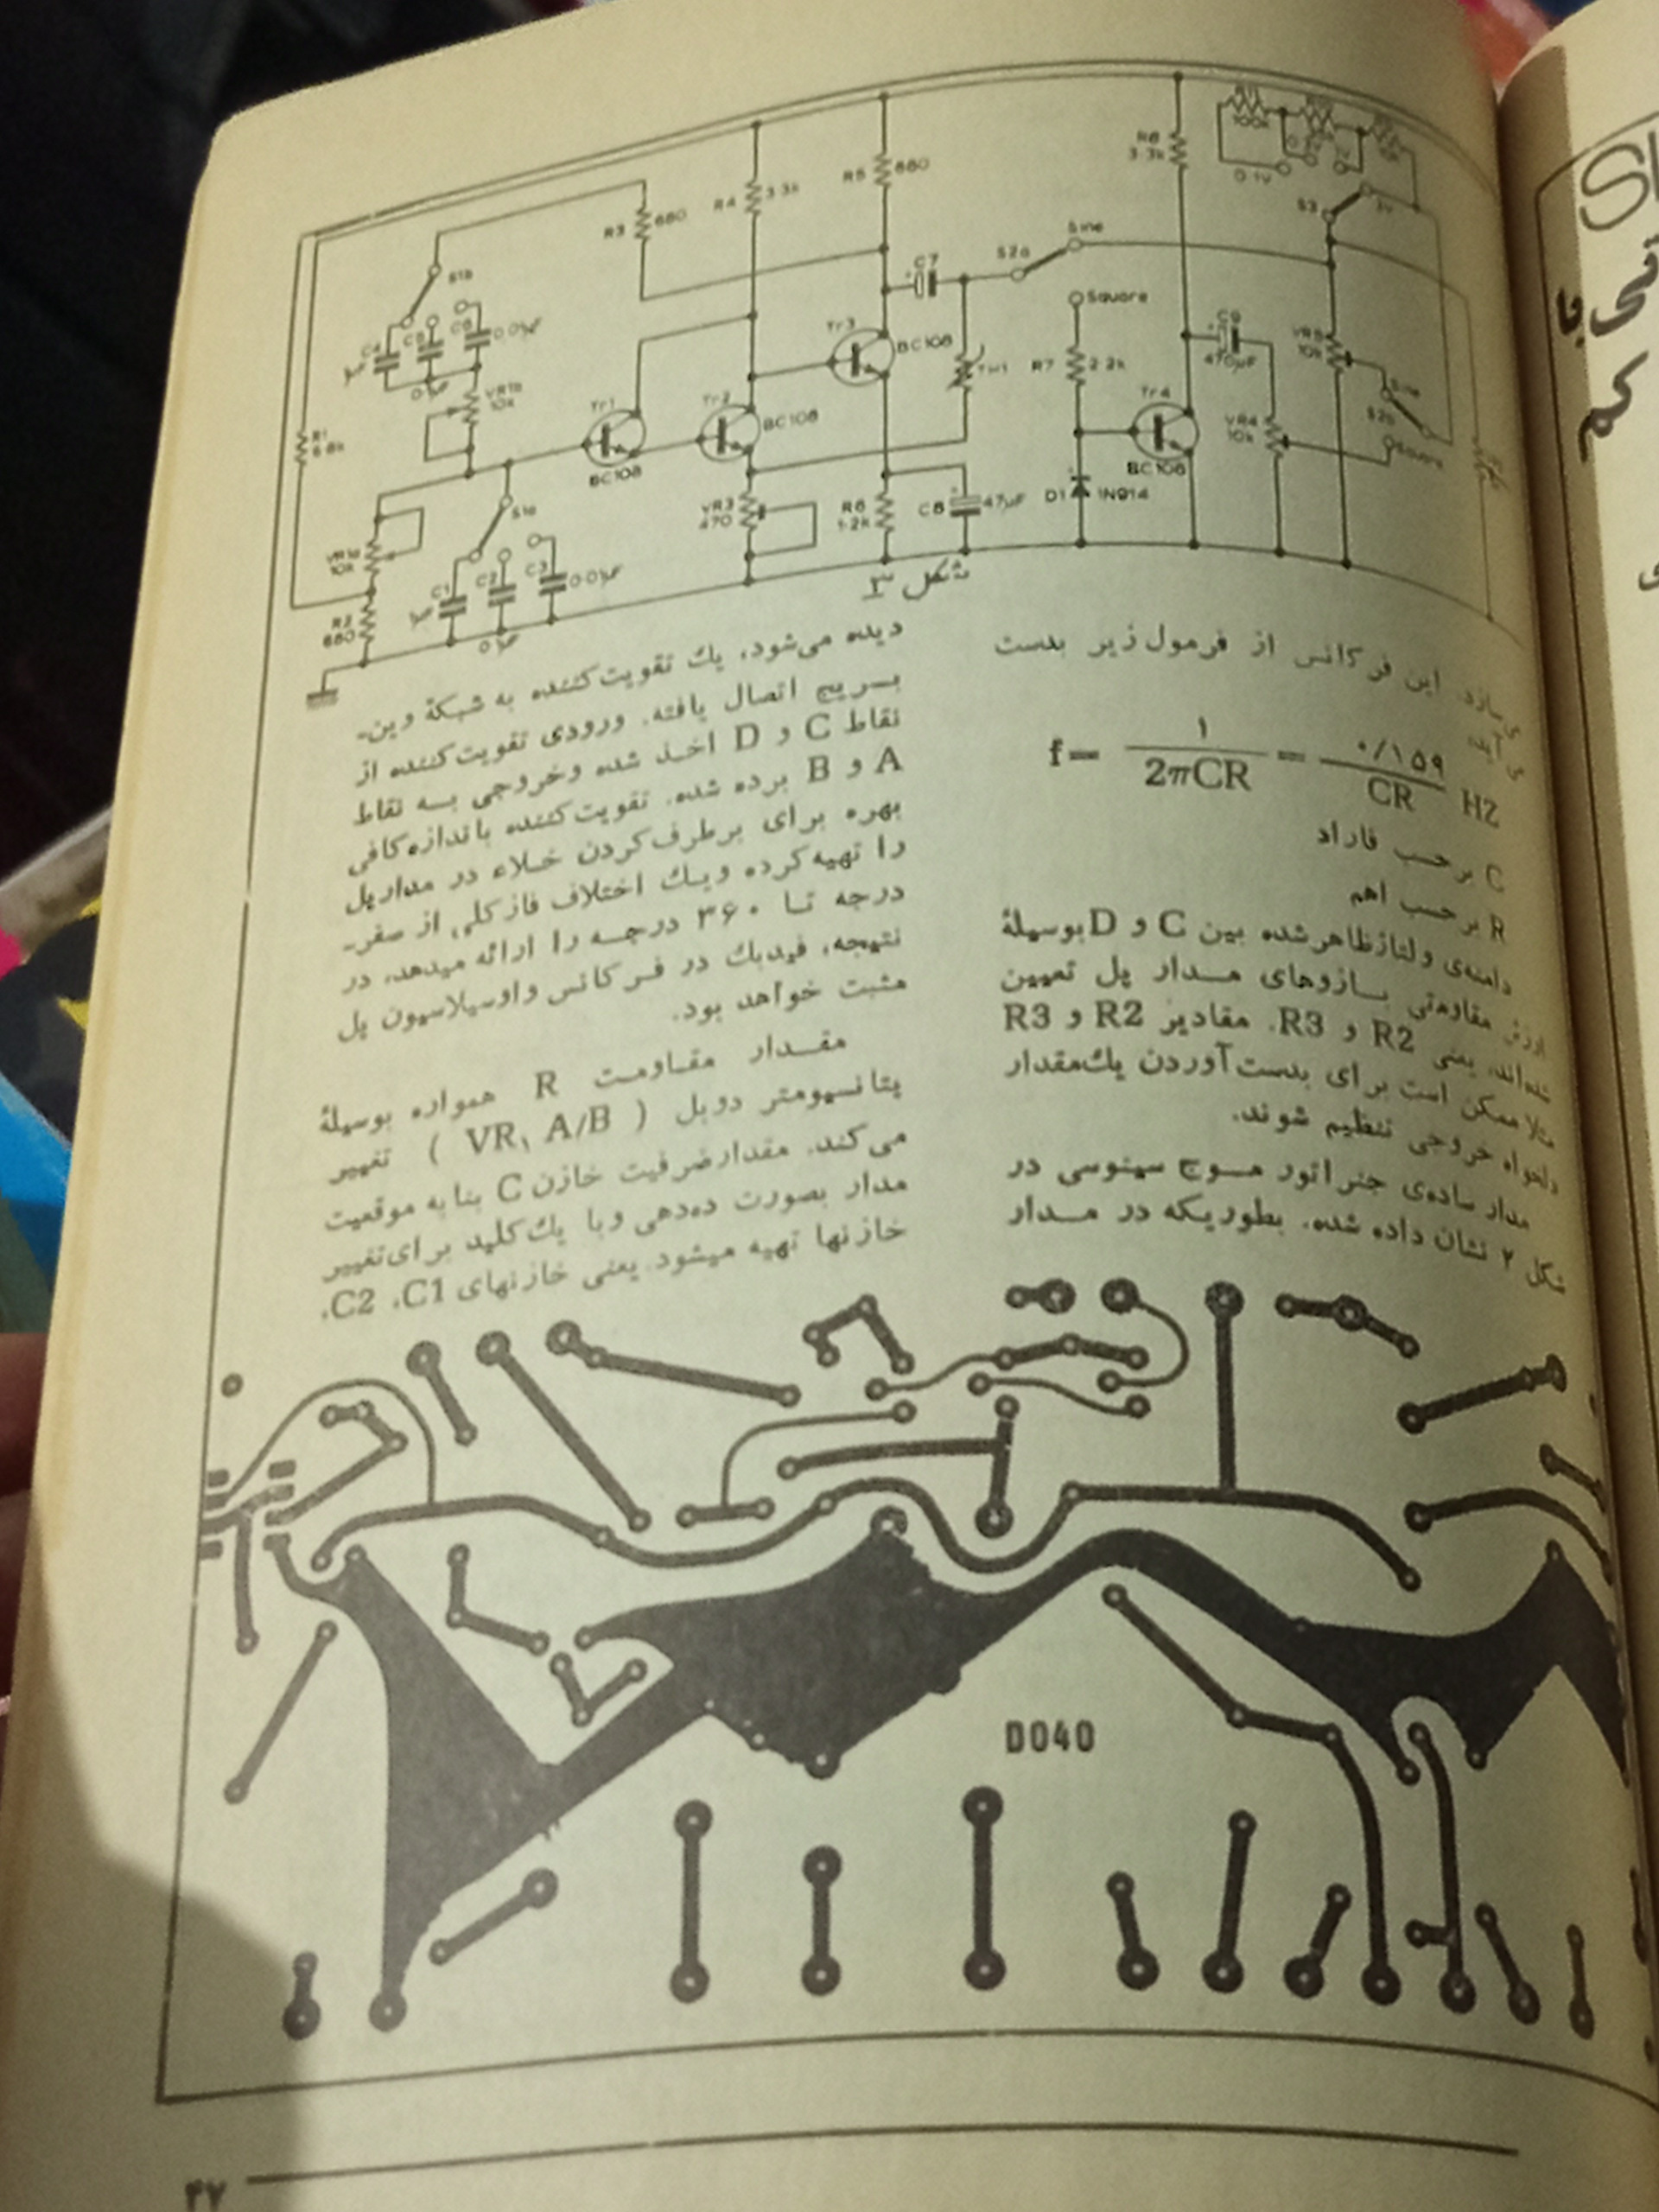 R3
680
R4
3.3k
R5
680
R8
3.3k
100k
0.1v
S3
S1b
C4
C5
C6
0.01µF
0.1µF
VR1b
10k
R1
6.8k
Tr1
BC108
Tr2
BC108
Tr3
BC108
C7
S2a
Sine
Square
TH1
R7
2.2k
Tr4
BC108
C9
470µF
VR5
10k
Sine
S2b
Square
VR4
10k
D1
1N914
VR3
470
R6
1.2k
C8
47µF
S1a
VR1a
10k
R2
680
C1
1µF
C2
0.1µF
C3
0.01µF
شکل ۳
می‌سازد. این فرکانس از فرمول زیر بدست
می‌آید:
f= ۱ / 2πCR = ۰/۱۵۹ / CR HZ
C برحسب فاراد
R برحسب اهم
دامنه‌ی ولتاژ ظاهر شده بین C و D بوسیلهٔ
ارزش مقاومتی بازوهای مدار پل تعیین
شده‌اند، یعنی R2 و R3. مقادیر R2 و R3
مثلا ممکن است برای بدست آوردن یك مقدار
دلخواه خروجی تنظیم شوند.
مدار ساده‌ی جنراتور موج سینوسی در
شکل ۲ نشان داده شده. بطوریکه در مدار
دیده می‌شود، یك تقویت کننده به شبکهٔ وین-
بریج اتصال یافته. ورودی تقویت کننده از
نقاط C و D اخذ شده وخروجی به نقاط
A و B برده شده. تقویت کننده باندازه کافی
بهره برای برطرف کردن خلاء در مدارپل
را تهیه کرده ویك اختلاف فاز کلی، از صفر-
درجه تا ۳۶۰ درجه را ارائه میدهد، در
نتیجه، فیدبك در فرکانس واوسیلاسیون پل
مثبت خواهد بود.
مقدار مقاومت R همواره بوسیلهٔ
پتانسیومتر دوبل ( VR۱ A/B ) تغییر
می‌کند. مقدار ظرفیت خازن C بنا به موقعیت
مدار بصورت ده‌دهی وبا یك کلید برای تغییر
خازنها تهیه میشود. یعنی خازنهای C1، C2،
D040
۴۷